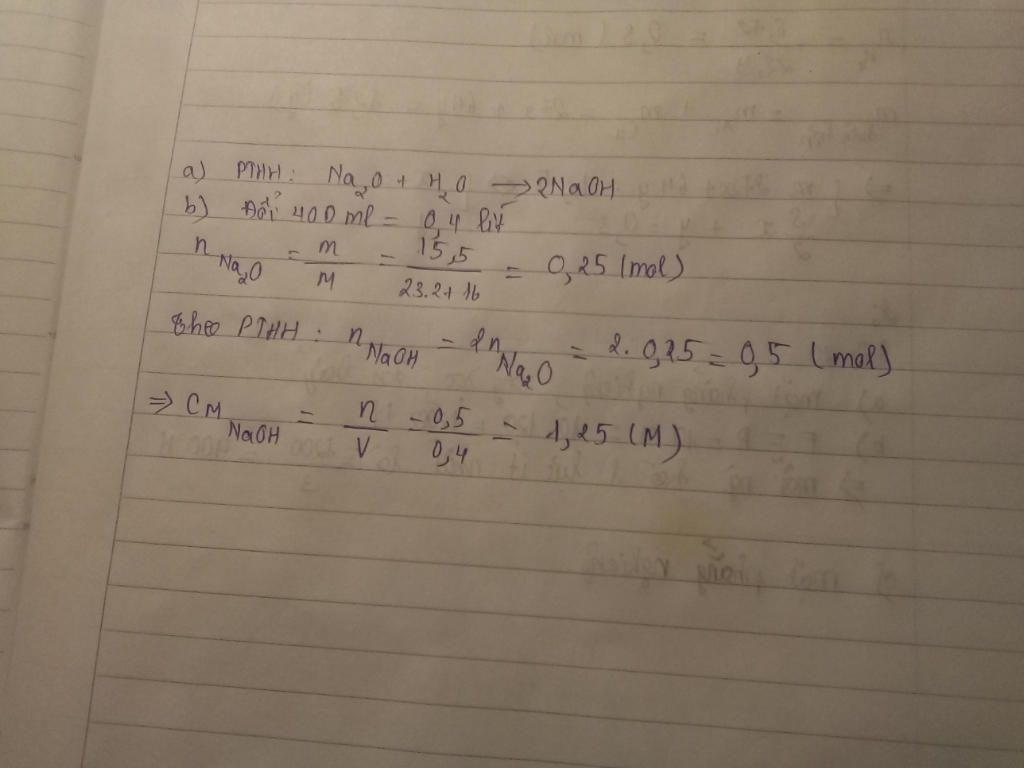 a) PTHH: Na2O + H2O → 2NaOH
b) Đổi 400 ml = 0,4 lít
n Na2O = m/M = 15,5/23.2+16 = 0,25 (mol)
Theo PTHH: n NaOH = 2n Na2O = 2. 0,25 = 0,5 (mol)
⇒ CM NaOH = n/V = 0,5/0,4 = 1,25 (M)